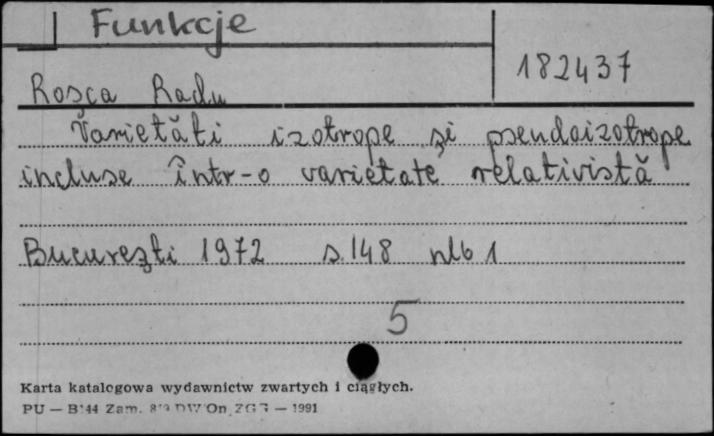 Funkcje
182437
Roşca Radu
Varietăti izotrope şi pseudoizotrope
incluse într-o varietate relativistă
Bucureşti 1972 s.148 nlb 1
5
Karta katalogowa wydawnictw zwartych i ciągłych.
PU — Zam. — 1991